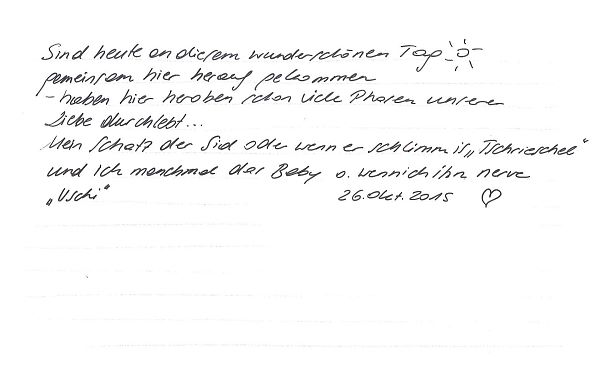 Sind heute an diesem wunderschönen Tag
gemeinsam hier herauf gekommen
- haben hier heroben schon viele Phasen unserer
Liebe durchlebt...
Mein Schatz der Sid oder wenn er schlimm is „Tschrieschel“
und ich manchmal das Baby o. wenn ich ihn nerve
„Uschi“ 26. Okt. 2015 ♡